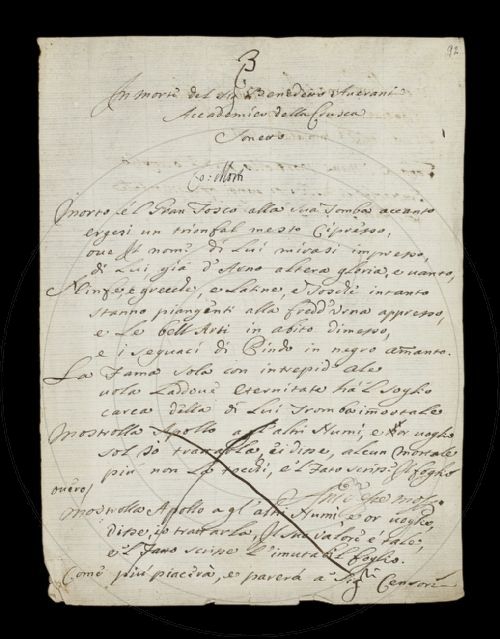 92
3
In morte del Sig.r Benedetto Averani
Accademico della Crusca
Sonetto
Morto è l Gran Tosco alla sua Tomba accanto
ergesi un trionfal mesto Cipresso,
ove Il nome di Lui mirasi impresso,
di Lui già d'Arno altera gloria, e vanto,
Ninfe, e greche, e Latine, e Tosche intanto
stanno piangenti alla fredd'Urna appresso,
e Le bell'Arti in abito dimesso,
e i seguaci di Pindo in negro amanto.
La Fama sola con intrepid'Ale
vola Laddove eternitate há l soglio
cerca della di Lui Tromba imortale
Mostrolla Apollo a gl'altri Numi, e or voglio
sol Io trattarla ei disse, alcun Mortale
più non La tocchi, e l Fato scrisse Il foglio
overo,
Mostrolla Apollo a gl'altri Numi e or voglio,
disse, io trattarla, Il suo valore è tale,
e l Fato scrisse l'imutabil foglio.
Come più piacerà, e parerà a Sig.ri Censori